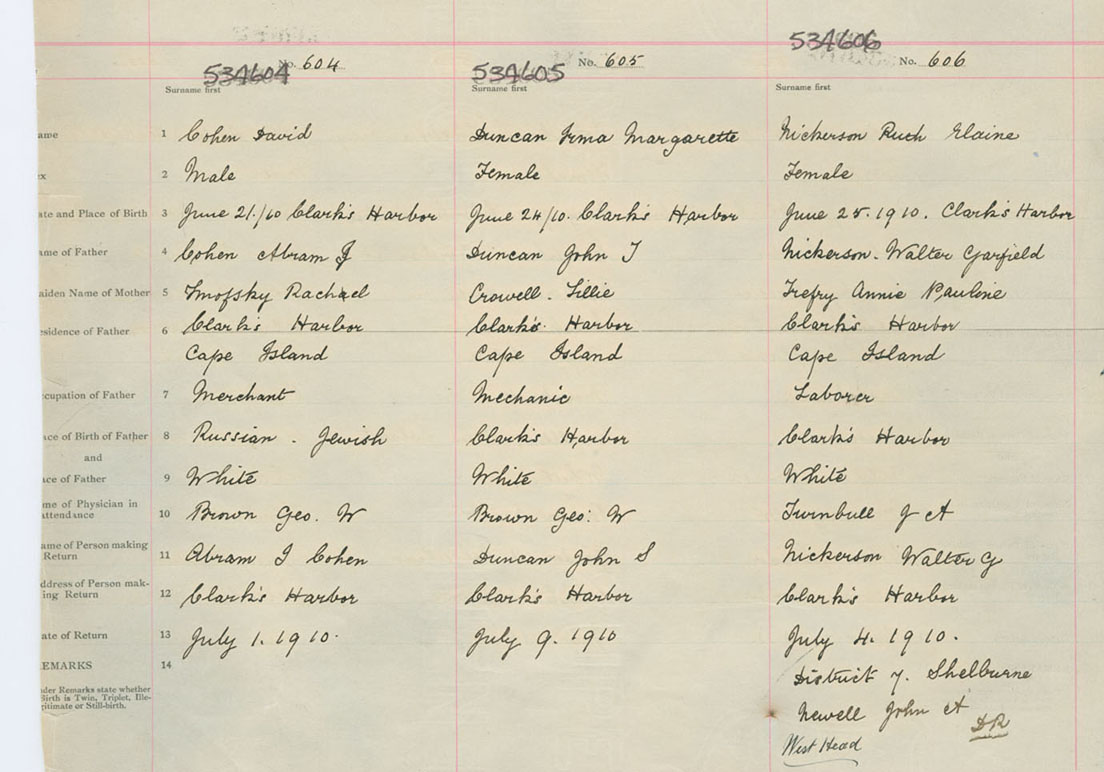 534604 No. 604
Surname first
534605 No. 605
Surname first
534606 No. 606
Surname first
ame 1 Cohen David Duncan Irma Margarette Nickerson Ruth Elaine
x 2 Male Female Female
ate and Place of Birth 3 June 21./10 Clark's Harbor June 24/10. Clark's Harbor June 25. 1910. Clark's Harbor
ame of Father 4 Cohen Abram J Duncan John T Nickerson. Walter Garfield
aiden Name of Mother 5 Smofsky Rachael Crowell. Lillie Trefry Annie Pauline
esidence of Father 6 Clark's Harbor Clark's. Harbor Clark's Harbor
Cape Island Cape Island Cape Island
ccupation of Father 7 Merchant Mechanic Laborer
ace of Birth of Father 8 Russian. Jewish Clark's Harbor Clark's Harbor
and
ace of Father 9 White White White
me of Physician in
ttendance 10 Brown Geo. W Brown Geo: W Turnbull J A
ame of Person making
Return 11 Abram J Cohen Duncan John S Nickerson Walter G
ddress of Person mak-
ing Return 12 Clark's Harbor Clark's Harbor Clark's Harbor
ate of Return 13 July 1. 1910. July 9. 1910 July 4. 1910.
EMARKS 14
nder Remarks state whether
Birth is Twin, Triplet, Ille-
gitimate or Still-birth.
District 7. Shelburne
Newell John A DR
West Head